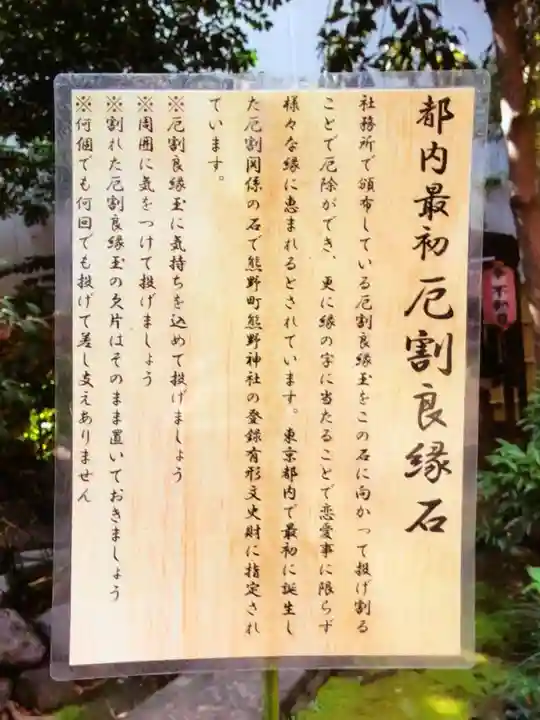 都内最初 厄割良縁石
社務所で頒布している厄割良縁玉をこの石に向かって投げ割る
ことで厄除ができ、更に縁の字に当たることで恋愛事に限らず
様々な縁に恵まれるとされています。東京都内で最初に誕生し
た厄割関係の石で熊野町熊野神社の登録有形文史財に指定され
ています。
※厄割良縁玉に気持ちを込めて投げましょう
※周囲に気をつけて投げましょう
※割れた厄割良縁玉の欠片はそのまま置いておきましょう
※何個でも何回でも投げて差し支えありません